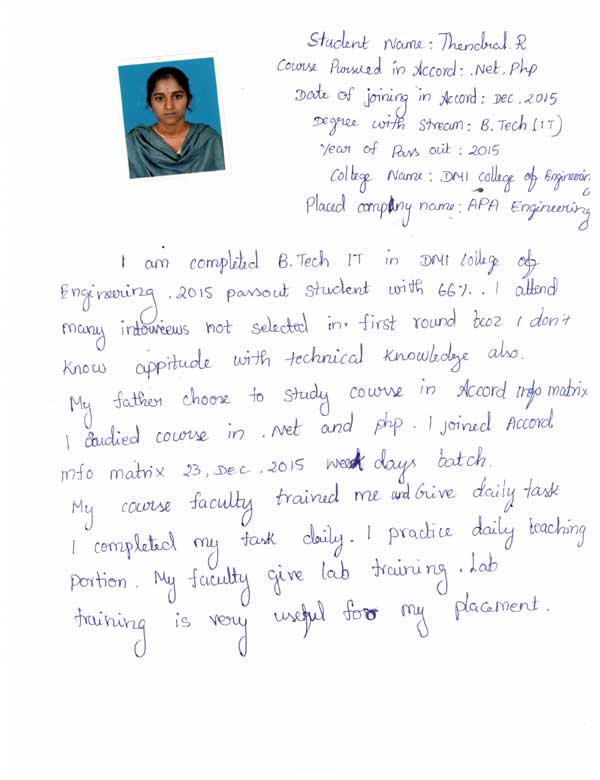 Student Name: Thendral.R
Course Pursued in Accord: .Net, Php
Date of joining in Accord: Dec, 2015
Degree with Stream: B.Tech (IT)
Year of Pass out: 2015
College Name: DMI college of Engineering
Placed company name: APA Engineering
I am completed B.Tech IT in DMI College of
Engineering. 2015 passout student with 66%. I attend
many interviews not selected in first round bcoz I don't
know appitude with technical knowledge also.
My father choose to study course in Accord info matrix
I studied course in .Net and php. I joined Accord
info matrix 23, Dec, 2015 week days batch.
My course faculty trained me and Give daily task
I completed my task daily. I practice daily teaching
portion. My faculty give lab training. Lab
training is very useful for my placement.